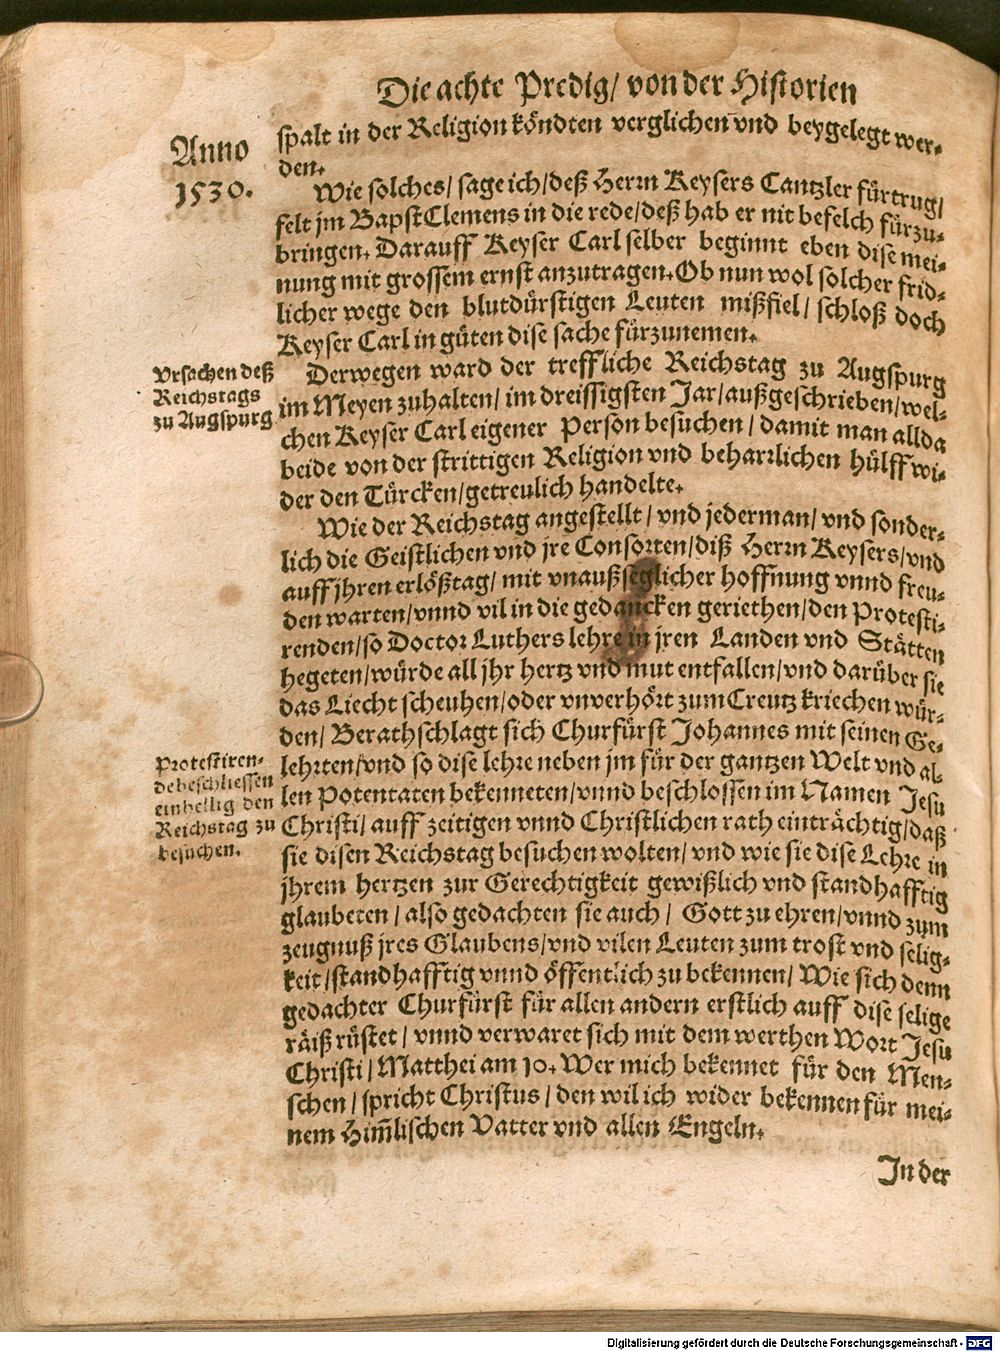 Die achte Predig/ von der Historien
Anno
1530.
spalt in der Religion köndten verglichen vnd beygelegt wer-
den.
Wie solches/ sage ich/ deß Herrn Keysers Cantzler fürtrug/
felt jm Bapst Clemens in die rede/ deß hab er nit befelch fürzu-
bringen. Darauff Keyser Carl selber beginnt eben dise mei-
nung mit grossem ernst anzutragen. Ob nun wol solcher frid-
licher wege den blutdürstigen Leuten mißfiel/ schloß doch
Keyser Carl in güten dise sache fürzunemen.
Vrsachen deß
Reichstags
zu Augspurg
Derwegen ward der treffliche Reichstag zu Augspurg
im Meyen zuhalten/ im dreissigsten Jar/ außgeschrieben/ wel-
chen Keyser Carl eigener Person besuchen/ damit man allda
beide von der strittigen Religion vnd beharrlichen hülff wi-
der den Türcken/ getreulich handelte.
Wie der Reichstag angestellt/ vnd jederman/ vnd sonder-
lich die Geistlichen vnd jre Consorten/ diß Herrn Keysers/ vnd
auff jhren erlößtag/ mit vnaußseglicher hoffnung vnnd freu-
den warten/ vnnd vil in die gedancken geriethen/ den Protesti-
renden/ so Doctor Luthers lehre in jren Landen vnd Stätten
hegeten/ würde all jhr hertz vnd mut entfallen/ vnd darüber sie
das Liecht scheuhen/ oder vnverhört zum Creutz kriechen wür-
den/ Berathschlagt sich Churfürst Johannes mit seinen Ge-
lehrten/ vnd so dise lehre neben jm für der gantzen Welt vnd al-
len Potentaten bekenneten/ vnnd beschlossen im Namen Jesu
Christi/ auff zeitigen vnnd Christlichen rath einträchtig/ daß
sie disen Reichstag besuchen wolten/ vnd wie sie dise Lehre in
jhrem hertzen zur Gerechtigkeit gewißlich vnd standhafftig
glaubeten/ also gedachten sie auch/ Gott zu ehren/ vnnd zum
zeugnuß jres Glaubens/ vnd vilen Leuten zum trost vnd selig-
keit/ standhafftig vnnd öffentlich zu bekennen/ Wie sich denn
gedachter Churfürst für allen andern erstlich auff dise selige
räiß rüstet/ vnnd verwaret sich mit dem werthen Wort Jesu
Christi/ Matthei am 10. Wer mich bekennet für den Men-
schen/ spricht Christus/ den wil ich wider bekennen für mei-
nem Him̃lischen Vatter vnd allen Engeln.
Protestiren-
de beschliessen
einhellig den
Reichstag zu
besuchen.
In der
Digitalisierung gefördert durch die Deutsche Forschungsgemeinschaft - DFG